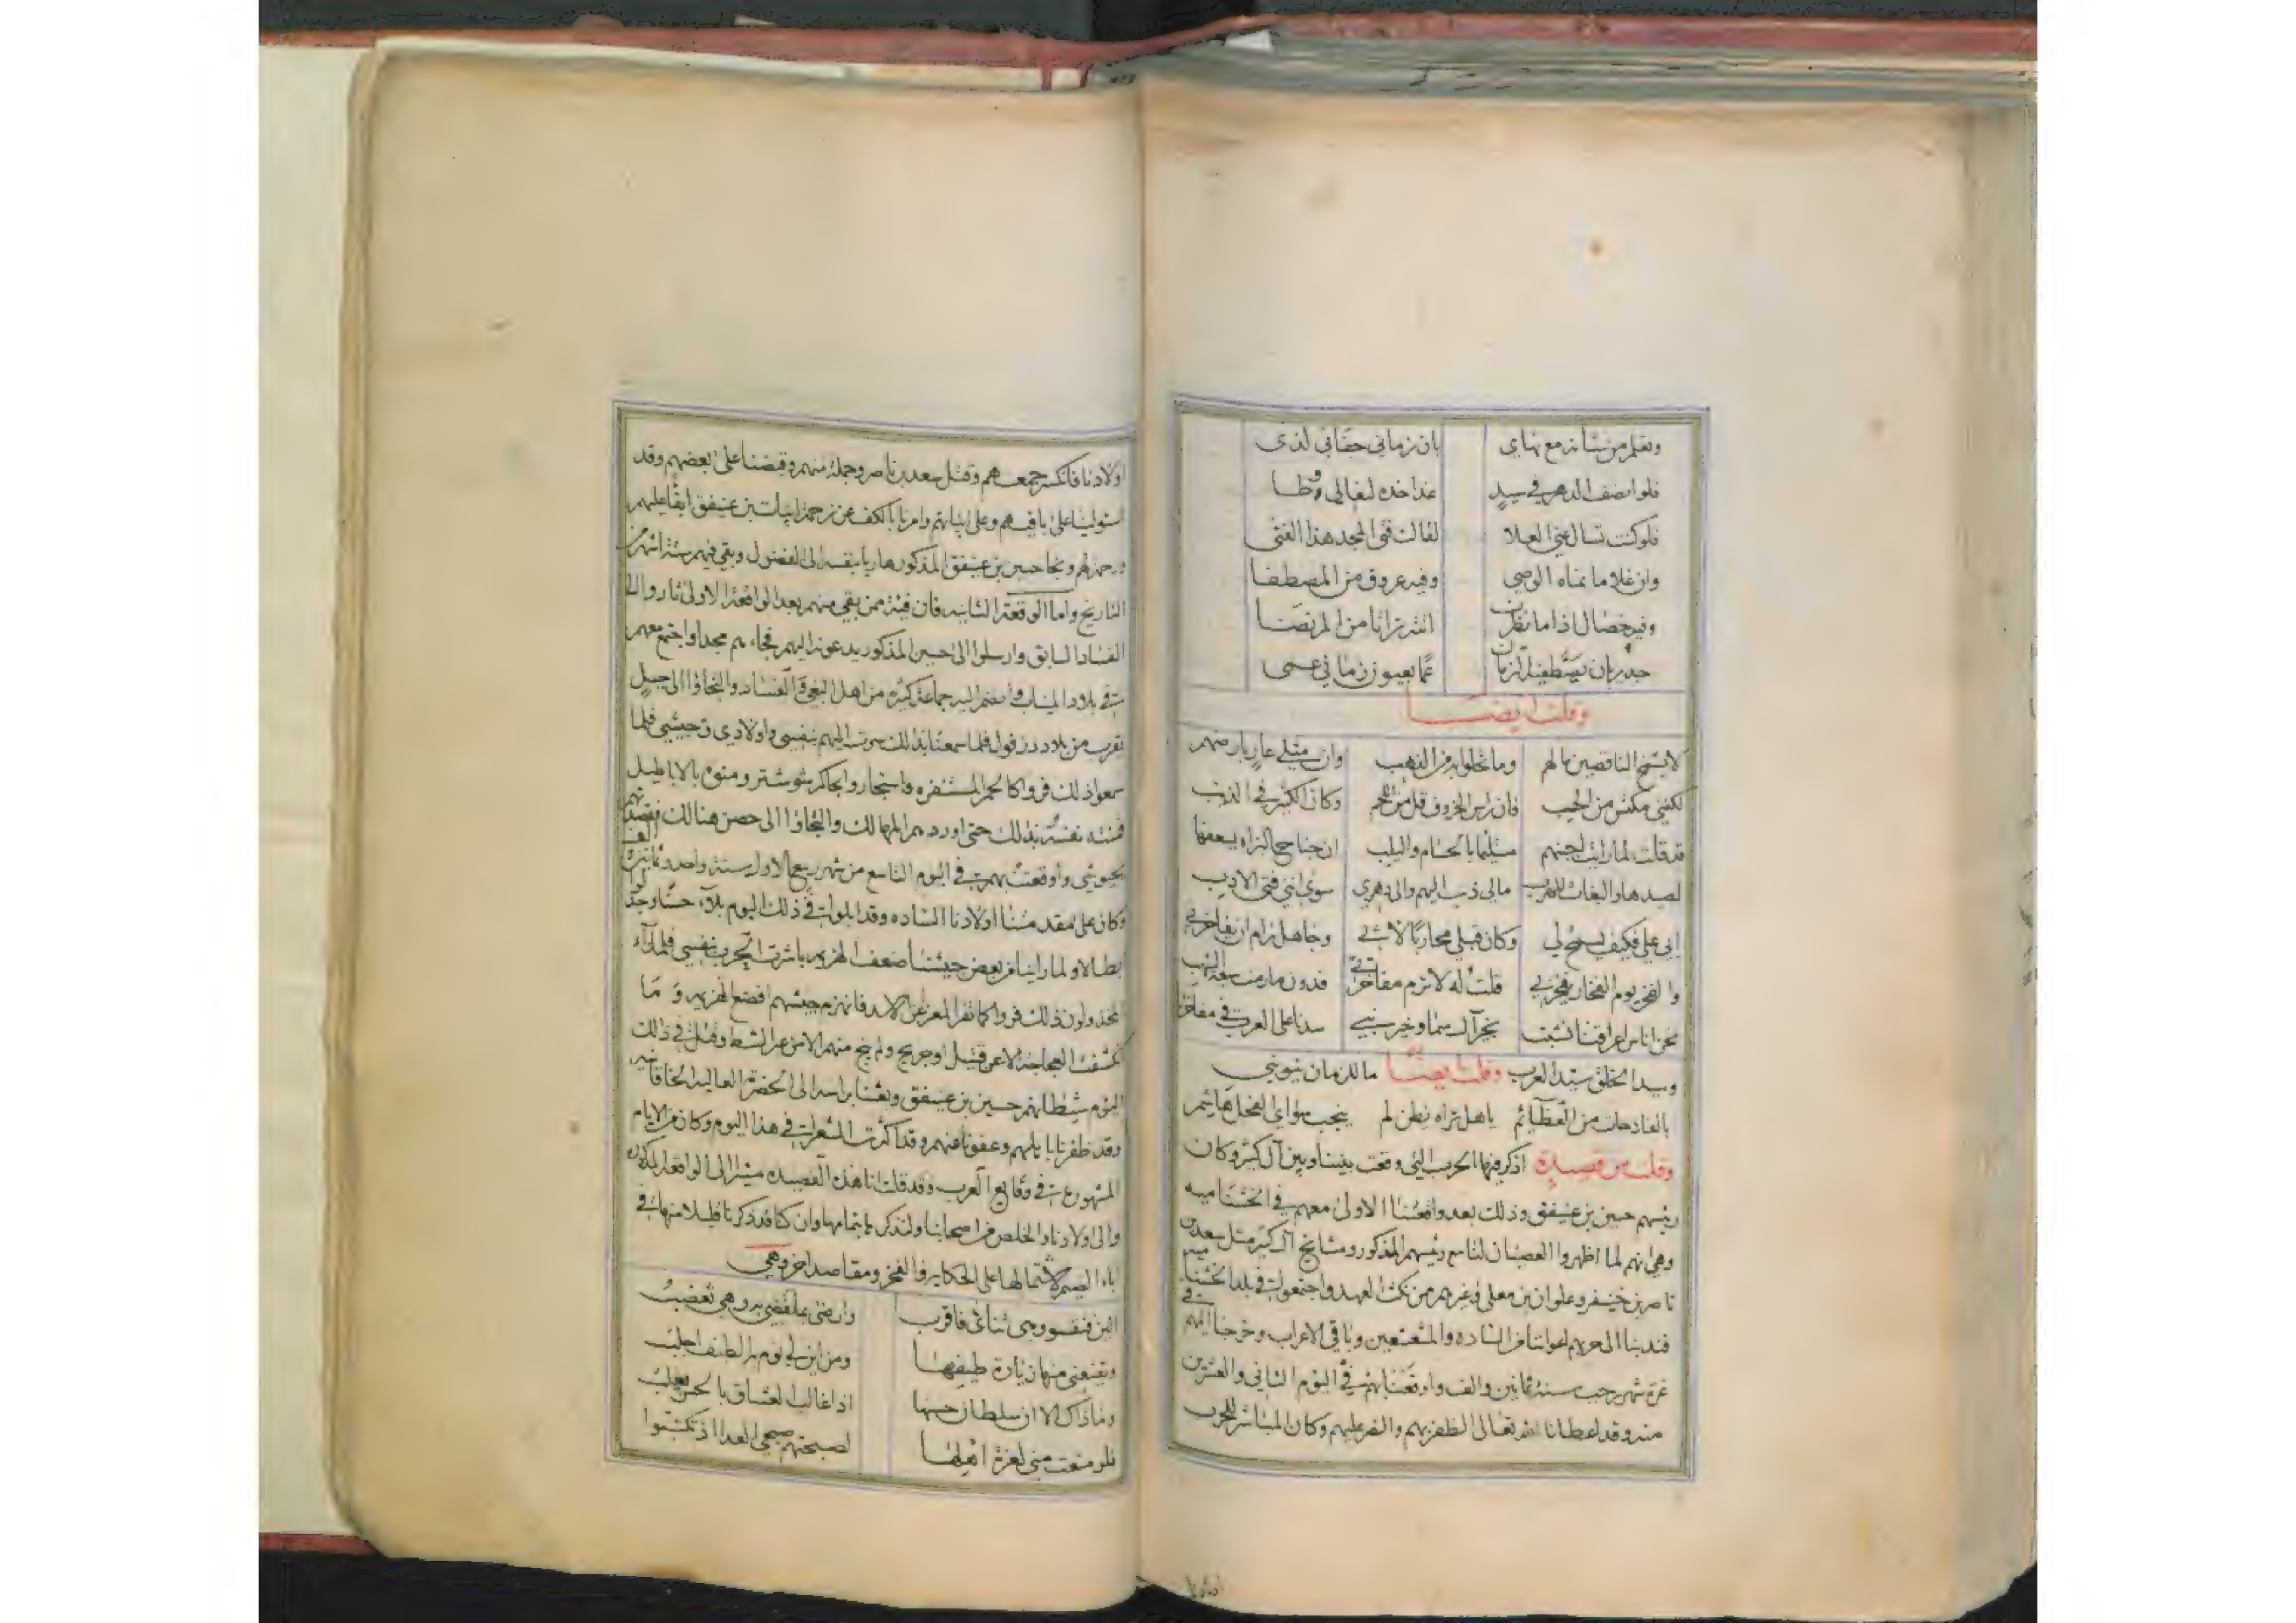 وتعلم من شانه مع نهاى بان زمانى حقا فى لذى
فلو انصف الدهر فى سيد غدا خده لنعالى وطا
فلو كنت تسال عنى العلا لقالت فتى المجد هذا الفتى
وان غلاما نماه الوصى وفيه عروق من المصطفا
وفيه خصال اذا ما نظرن اتته تراثا من المرتضا
جدير بان
وقلت ايضا
لا يشمخ الناقصين مالهم وما تحلوا به من الذهب وان مثلى عار بارضهم
لكننى مكتس من الحسب فان راس الخروف قل من اللحم وكان الكثير فى الذنب
قد قلت لما رايت لجتهم بالحسام واليلب
مالى ذنب اليهم والى دهرى سوى اننى فتى الادب
ابى على فكيف يسمح لى وكان قبلى محاربا لابى وجاهل رام ان يفاخرنى
والفخر يوم الفخار يفخر بى قلت له لا ترم مفاخرتى فدون ما رمت
نحن اناس اعراقنا نشبت بخير آل سما وخير نبى سدنا على العرب فى مفاخرنا
وسيد الخلق سيد العرب وقلت ايضا ما للزمان ينوبنى
بالفادحات من العظائم يا هل تراه يظن لم ينجب سواى الفحل هاشم
وقلت من قصيدة اذكر فيها الحرب التى وقعت بيننا وبين آل كثير وكان
رئيسهم حسين بن عنيفق وذلك بعد واقعتنا الاولى معهم فى الخشاميه
وهى انهم لما اظهروا العصيان لنا مع رئيسهم المذكور ومشايخ آل كثير مثل سعد بن
ناصر بن خنيفر وعلوان بن معلى وغيرهم من نكث العهد واجتمعوا فى بلد
فندبنا الى حربهم اعواننا من الساده والمشعشعين وباقى الاعراب وخرجنا اليهم فى
غرة شهر رجب سنة ثمانين والف واوقعنا بهم فى اليوم الثانى والعشرين
منه وقد اعطانا الله تعالى الظفر بهم والنصر عليهم وكان المباشر للحرب
اولادنا فانكسر جمعهم وقتل سعد بن ناصر وجملة منهم وقبضنا على بعضهم وقد
استولينا على باقيهم وعلى ابياتهم وامرنا بالكف عن زحمة ابيات بن عنيفق ابقاء عليهم
ورحمة لهم ونجا حسين بن عنيفق المذكور هاربا بنفسه الى الفضول وبقى فيهم ستة اشهر من
التاريخ واما الوقعة الثانيه فان فئة ممن بقى منهم بعد الواقعة الاولى ثاروا الى
الفساد السابق وارسلوا الى حسين المذكور يدعونه اليهم فجاءهم مجدا واجتمع معهم
فى بلاد وانضم اليه جماعة كثيره من اهل البغى والفساد والتجاؤا الى جبل
بقرب من بلاد دزفول فلما سمعنا بذلك سرت اليهم بنفسى واولادى وجيشى فلما
سمعوا ذلك فروا كالحمر المستنفره واستجاروا بحاكم شوشتر ومنوه بالاباطيل
فمنته نفسه بذلك حتى اوردهم المهالك والتجاؤا الى حصن هنالك فقصدتهم
بجيوشى واوقعت بهم فى اليوم التاسع من شهر ربيع الاول سنة واحد وثمانين والف
وكان على مقدمتنا اولادنا الساده وقد ابلوا فى ذلك اليوم بلاء حسنا
ولما راينا من بعض جيشنا ضعف الهزيمه باشرت الحرب بنفسى فلما رآه
المخذولون ذلك فروا كما تفر المعز عن الاسد فانهزم جيشهم افضع الهزيمه وما
انكشفت العجاجة الا عن قتيل او جريح ولم ينج منهم الا من عبر الشط وقتل فى ذلك
اليوم شيطانهم حسين بن عنيفق وبعثنا براسه الى الحضرة العاليه الخاقانيه
وقد ظفرنا بابلهم وعفونا عنهم وقد اكثرت الشعرا فى هذا اليوم وكان من الايام
المشهوره فى وقايع العرب وقد قلت انا هذه القصيده مشيرا الى الواقعه المذكوره
والى اولادنا والخلص من اصحابنا ولنذكرها بتمامها وان كنا قد ذكرنا قليلا منها فى
اباء الضيم لاشتمالها على الحكايه والفخر ومقاصد اخر وهى
الين فتقسو وارضى بما تقضى به وهى تغضب
ويقنعنى منها زيارة طيفها ومن اين لى نوم به الطيف اجلب
وما ذاك الا ان سلطان حسنها اذا غالب العشاق بالحسن يغلب
فلو منعت منى لعزة اهلها لصبحتهم صبحى العدا اذ تكتبوا